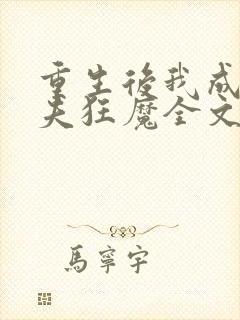 重生後我成
夫狂魔全文
馬寧宇